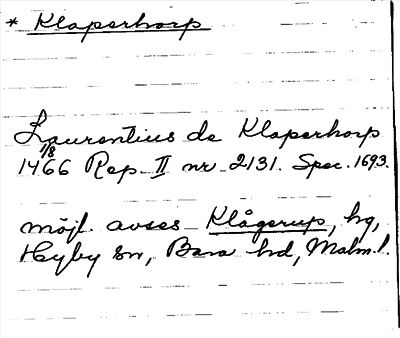 * Klaperhorp
Laurentius de Klaperhorp
1/8
1466 Rep. II nr 2131. Spec. 1693.
möjl. avses Klågerup, hg,
Hyby sn, Bara hd, Malm.l.